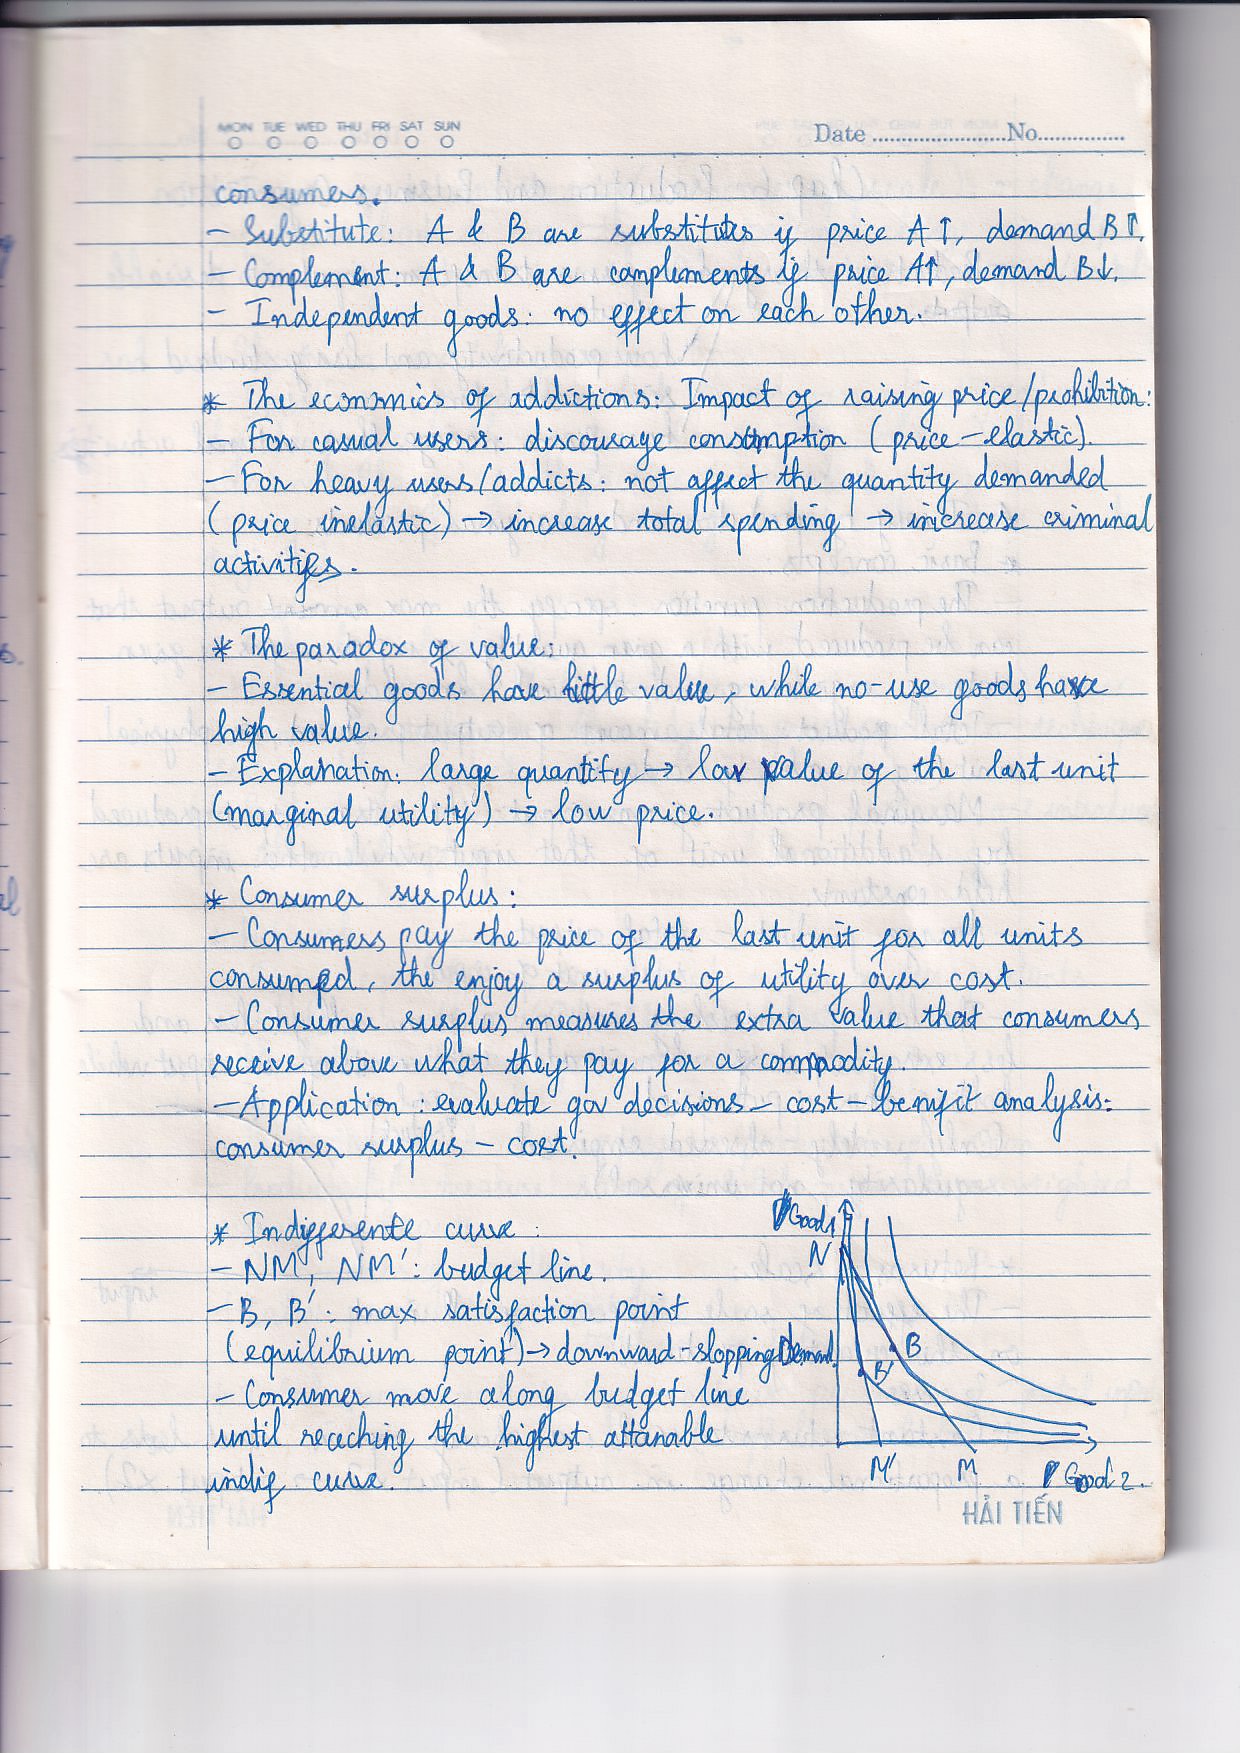 MON TUE WED THU FRI SAT SUN
Date ........................No...............
consumers.
- Substitute: A & B are substitutes if price A↑, demand B↑.
- Complement: A & B are complements if price A↑, demand B↓.
- Independent goods: no effect on each other.
* The economics of addictions: Impact of raising price/prohibition:
- For casual users: discourage consumption (price-elastic).
- For heavy users/addicts: not affect the quantity demanded
(price inelastic) → increase total spending → increase criminal
activities.
* The paradox of value:
- Essential goods have little value, while no-use goods have
high value.
- Explanation: large quantity → low value of the last unit
(marginal utility) → low price.
* Consumer surplus:
- Consumers pay the price of the last unit for all units
consumed, the enjoy a surplus of utility over cost.
- Consumer surplus measures the extra value that consumers
receive above what they pay for a commodity.
- Application: evaluate gov decisions - cost-benifit analysis:
consumer surplus - cost.
* Indifferente curve:
- NM, NM': budget line.
- B, B': max satisfaction point
(equilibrium point) → downward-slopping Demand.
- Consumer move along budget line
until reaching the highest attanable
indif curve.
Good 1
N
B
B'
M'
M
Good 2.
HẢI TIẾN